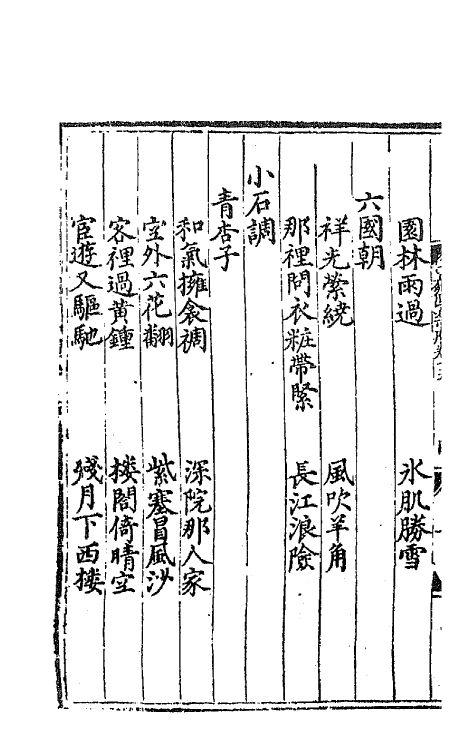 園林雨過　氷肌勝雪
六國朝
祥光縈繞　風吹羊角
那裡問衣粧帶緊　長江浪險
小石調
青杏子
和氣擁衾禂　深院那人家
空外六花翻　紫塞冒風沙
客裡過黃鍾　楼閣倚晴空
宦遊又驅馳　殘月下西楼